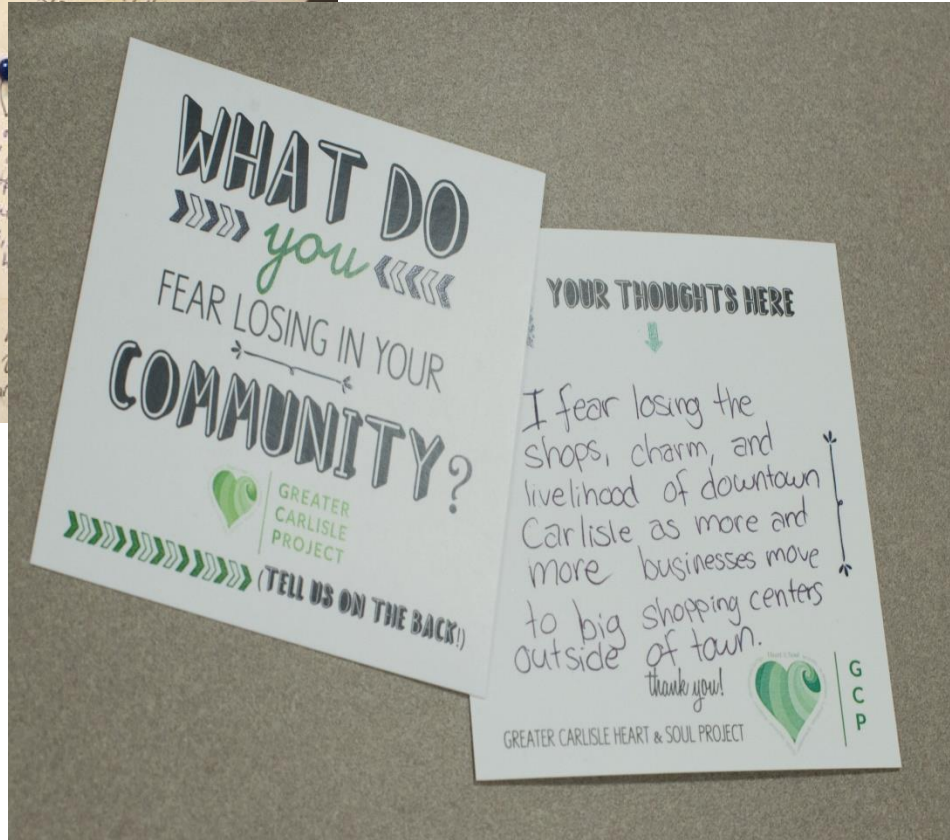 WHAT DO
you
FEAR LOSING IN YOUR
COMMUNITY?
GREATER
CARLISLE
PROJECT
(TELL US ON THE BACK!)
YOUR THOUGHTS HERE
I fear losing the
shops, charm, and
livelihood of downtown
Carlisle as more and
more businesses move
to big shopping centers
outside of town.
thank you!
GREATER CARLISLE HEART & SOUL PROJECT
G
C
P